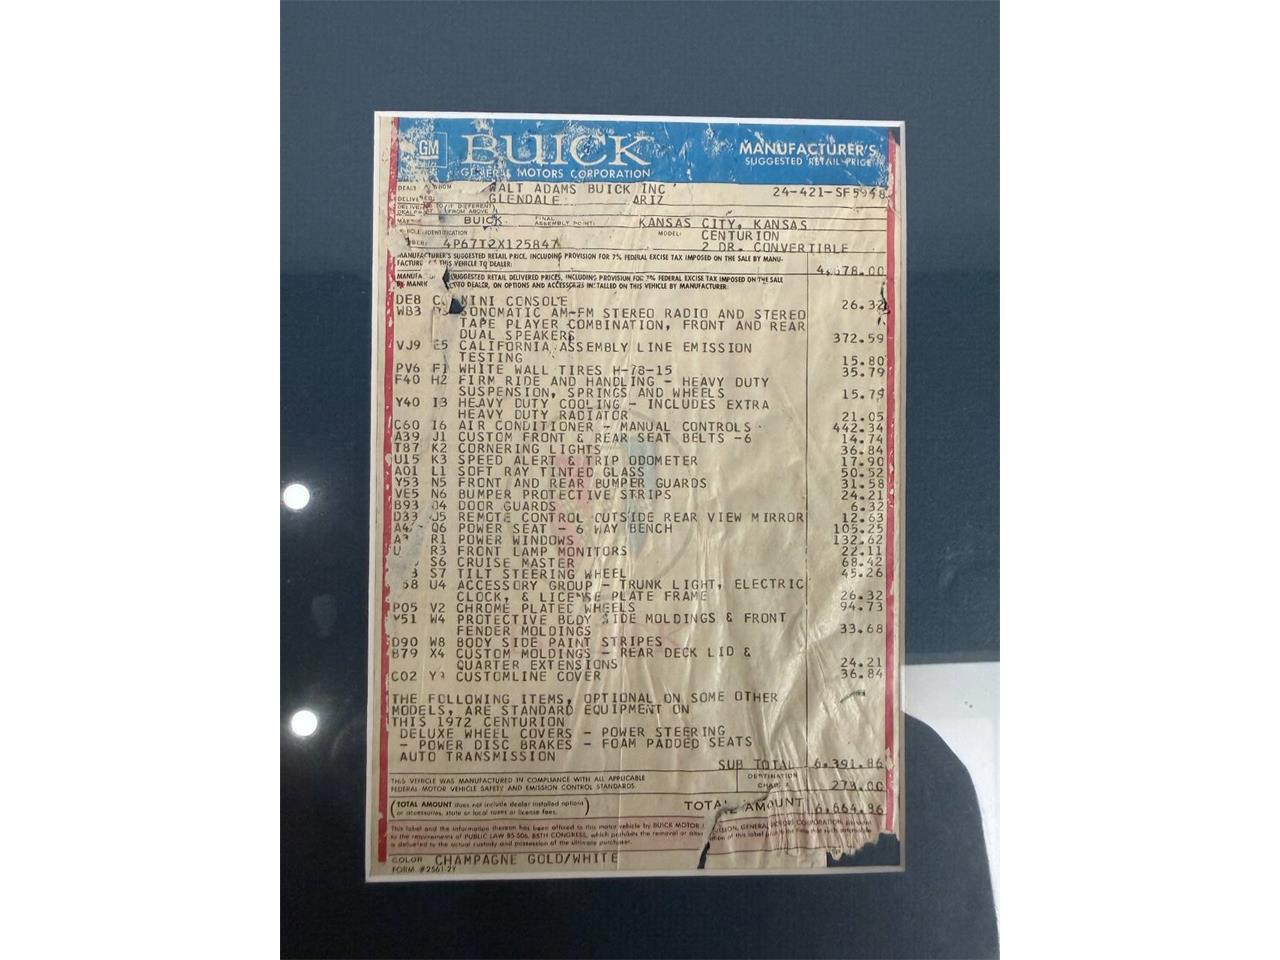 GM BUICK MANUFACTURER'S
GENERAL MOTORS CORPORATION SUGGESTED RETAIL PRICE
WALT ADAMS BUICK INC 24-421-SF5948
DELIVERED GLENDALE ARIZ
(IF DIFFERENT FROM ABOVE)
BUICK FINAL ASSEMBLY POINT: KANSAS CITY, KANSAS
IDENTIFICATION MODEL: CENTURION
4P67T2X125847 2 DR. CONVERTIBLE
MANUFACTURER'S SUGGESTED RETAIL PRICE, INCLUDING PROVISION FOR 7% FEDERAL EXCISE TAX IMPOSED ON THE SALE BY MANU-
FACTURE THIS VEHICLE TO DEALER: 4,678.00
SUGGESTED RETAIL DELIVERED PRICES, INCLUDING PROVISION FOR 7% FEDERAL EXCISE TAX IMPOSED ON THE SALE
TO DEALER, ON OPTIONS AND ACCESSORIES INSTALLED ON THIS VEHICLE BY MANUFACTURER:
DE8 MINI CONSOLE 26.32
WB3 SONOMATIC AM-FM STEREO RADIO AND STEREO
TAPE PLAYER COMBINATION, FRONT AND REAR
DUAL SPEAKERS 372.59
VJ9 E5 CALIFORNIA ASSEMBLY LINE EMISSION
TESTING 15.80
PV6 F1 WHITE WALL TIRES H-78-15 35.79
F40 H2 FIRM RIDE AND HANDLING - HEAVY DUTY
SUSPENSION, SPRINGS AND WHEELS 15.79
Y40 I3 HEAVY DUTY COOLING - INCLUDES EXTRA
HEAVY DUTY RADIATOR 21.05
C60 I6 AIR CONDITIONER - MANUAL CONTROLS 442.34
A39 J1 CUSTOM FRONT & REAR SEAT BELTS -6 14.74
T87 K2 CORNERING LIGHTS 36.84
U15 K3 SPEED ALERT & TRIP ODOMETER 17.90
A01 L1 SOFT RAY TINTED GLASS 50.52
Y53 N5 FRONT AND REAR BUMPER GUARDS 31.58
VE5 N6 BUMPER PROTECTIVE STRIPS 24.21
B93 O4 DOOR GUARDS 6.32
D33 O5 REMOTE CONTROL OUTSIDE REAR VIEW MIRROR 12.63
Q6 POWER SEAT - 6 WAY BENCH 105.25
R1 POWER WINDOWS 132.62
U R3 FRONT LAMP MONITORS 22.11
S6 CRUISE MASTER 68.42
3 S7 TILT STEERING WHEEL 45.26
58 U4 ACCESSORY GROUP - TRUNK LIGHT, ELECTRIC
CLOCK, & LICENSE PLATE FRAME 26.32
P05 V2 CHROME PLATED WHEELS 94.73
W4 PROTECTIVE BODY SIDE MOLDINGS & FRONT
FENDER MOLDINGS 33.68
D90 W8 BODY SIDE PAINT STRIPES
B79 X4 CUSTOM MOLDINGS - REAR DECK LID &
QUARTER EXTENSIONS 24.21
C02 CUSTOMLINE COVER 36.84
THE FOLLOWING ITEMS, OPTIONAL ON SOME OTHER
MODELS, ARE STANDARD EQUIPMENT ON
THIS 1972 CENTURION
DELUXE WHEEL COVERS - POWER STEERING
- POWER DISC BRAKES - FOAM PADDED SEATS
AUTO TRANSMISSION
SUB TOTAL 6,391.86
THIS VEHICLE WAS MANUFACTURED IN COMPLIANCE WITH ALL APPLICABLE DESTINATION
FEDERAL MOTOR VEHICLE SAFETY AND EMISSION CONTROL STANDARDS.
(TOTAL AMOUNT does not include dealer installed options TOTAL AMOUNT
or accessories, state or local taxes or license fees.)
This label and the information thereon has been affixed to this motor vehicle by BUICK MOTOR DIVISION, GENERAL MOTORS CORPORATION,
to the requirements of PUBLIC LAW 85-506, 85TH CONGRESS, which prohibits the removal or of this label prior to the time that such automobile
is delivered to the actual custody and possession of the ultimate purchaser.
COLOR CHAMPAGNE GOLD/WHITE
FORM #2561-2Y